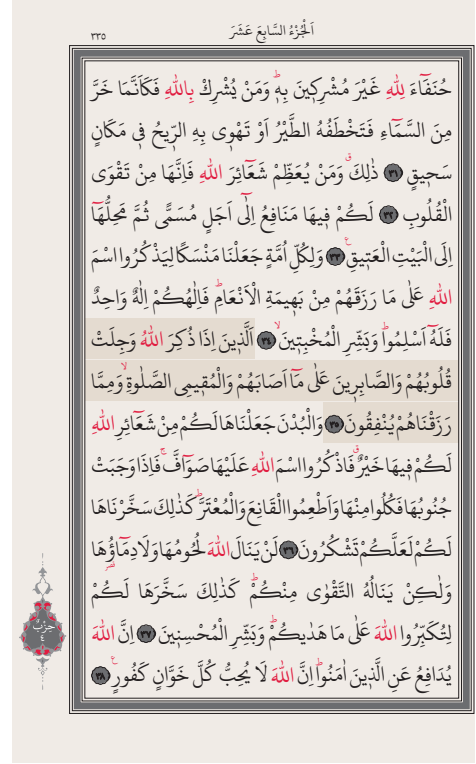 اَلْجُزْءُ السَّابِعَ عَشَرَ
٣٣٥
حُنَفَٓاءَ لِلّٰهِ غَيْرَ مُشْرِك۪ينَ بِه۪ۜ وَمَنْ يُشْرِكْ بِاللّٰهِ فَكَاَنَّمَا خَرَّ
مِنَ السَّمَٓاءِ فَتَخْطَفُهُ الطَّيْرُ اَوْ تَهْو۪ي بِهِ الرّ۪يحُ ف۪ي مَكَانٍ
سَح۪يقٍ ﴿٣١﴾ ذٰلِكَۗ وَمَنْ يُعَظِّمْ شَعَٓائِرَ اللّٰهِ فَاِنَّهَا مِنْ تَقْوَى
الْقُلُوبِ ﴿٣٢﴾ لَكُمْ ف۪يهَا مَنَافِعُ اِلٰٓى اَجَلٍ مُسَمًّى ثُمَّ مَحِلُّهَٓا
اِلَى الْبَيْتِ الْعَت۪يقِ۟ ﴿٣٣﴾ وَلِكُلِّ اُمَّةٍ جَعَلْنَا مَنْسَكًا لِيَذْكُرُوا اسْمَ
اللّٰهِ عَلٰى مَا رَزَقَهُمْ مِنْ بَه۪يمَةِ الْاَنْعَامِۜ فَاِلٰهُكُمْ اِلٰهٌ وَاحِدٌ
فَلَهُٓ اَسْلِمُواۜ وَبَشِّرِ الْمُخْبِت۪ينَۙ ﴿٣٤﴾ اَلَّذ۪ينَ اِذَا ذُكِرَ اللّٰهُ وَجِلَتْ
قُلُوبُهُمْ وَالصَّابِر۪ينَ عَلٰى مَٓا اَصَابَهُمْ وَالْمُق۪يمِي الصَّلٰوةِۙ وَمِمَّا
رَزَقْنَاهُمْ يُنْفِقُونَ ﴿٣٥﴾ وَالْبُدْنَ جَعَلْنَاهَا لَكُمْ مِنْ شَعَٓائِرِ اللّٰهِ
لَكُمْ ف۪يهَا خَيْرٌۗ فَاذْكُرُوا اسْمَ اللّٰهِ عَلَيْهَا صَوَٓافَّۚ فَاِذَا وَجَبَتْ
جُنُوبُهَا فَكُلُوا مِنْهَا وَاَطْعِمُوا الْقَانِعَ وَالْمُعْتَرَّۜ كَذٰلِكَ سَخَّرْنَاهَا
لَكُمْ لَعَلَّكُمْ تَشْكُرُونَ ﴿٣٦﴾ لَنْ يَنَالَ اللّٰهَ لُحُومُهَا وَلَا دِمَٓاؤُ۬هَا
وَلٰكِنْ يَنَالُهُ التَّقْوٰى مِنْكُمْۜ كَذٰلِكَ سَخَّرَهَا لَكُمْ
لِتُكَبِّرُوا اللّٰهَ عَلٰى مَا هَدٰيكُمْۜ وَبَشِّرِ الْمُحْسِن۪ينَ ﴿٣٧﴾ اِنَّ اللّٰهَ
يُدَافِعُ عَنِ الَّذ۪ينَ اٰمَنُواۜ اِنَّ اللّٰهَ لَا يُحِبُّ كُلَّ خَوَّانٍ كَفُورٍ۟ ﴿٣٨﴾
حِزْب
٤